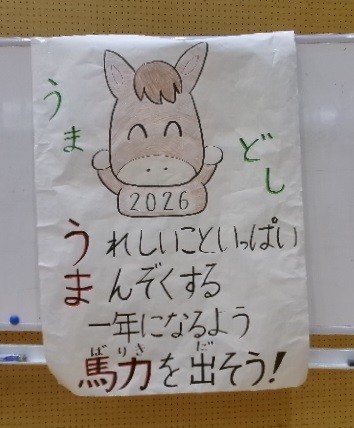 うま
どし
2026
うれしいこといっぱい
まんぞくする
一年になるよう
馬力を出そう!
ばりき
だ